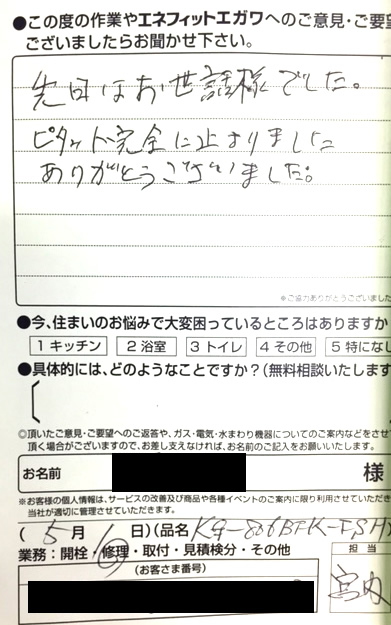 ●この度の作業やエネフィットエガワへのご意見・ご要
ございましたらお聞かせ下さい。
先日はお世話様でした。
ピタッと完全に止まりました
ありがとうございました。
※ご協力ありがとうございました
●今、住まいのお悩みで大変困っているところはありますか
1 キッチン 2 浴室 3 トイレ 4 その他 5 特になし
●具体的には、どのようなことですか?(無料相談いたします
◎頂いたご意見・ご要望へのご返答や、ガス・電気・水まわり機器についてのご案内などをさせ
頂く場合がございますので、お差し支えなければ、お名前のご記入をお願いいたします。
お名前 様
※お客様の個人情報は、サービスの改善及び商品や各種イベントのご案内に限り利用させていただき
当社が適切に管理させていただきます。
(5月6日)(品名 KG-806BFK-FSH)
業務:開栓・修理・取付・見積検分・その他
担当
(お客さま番号)
宮内